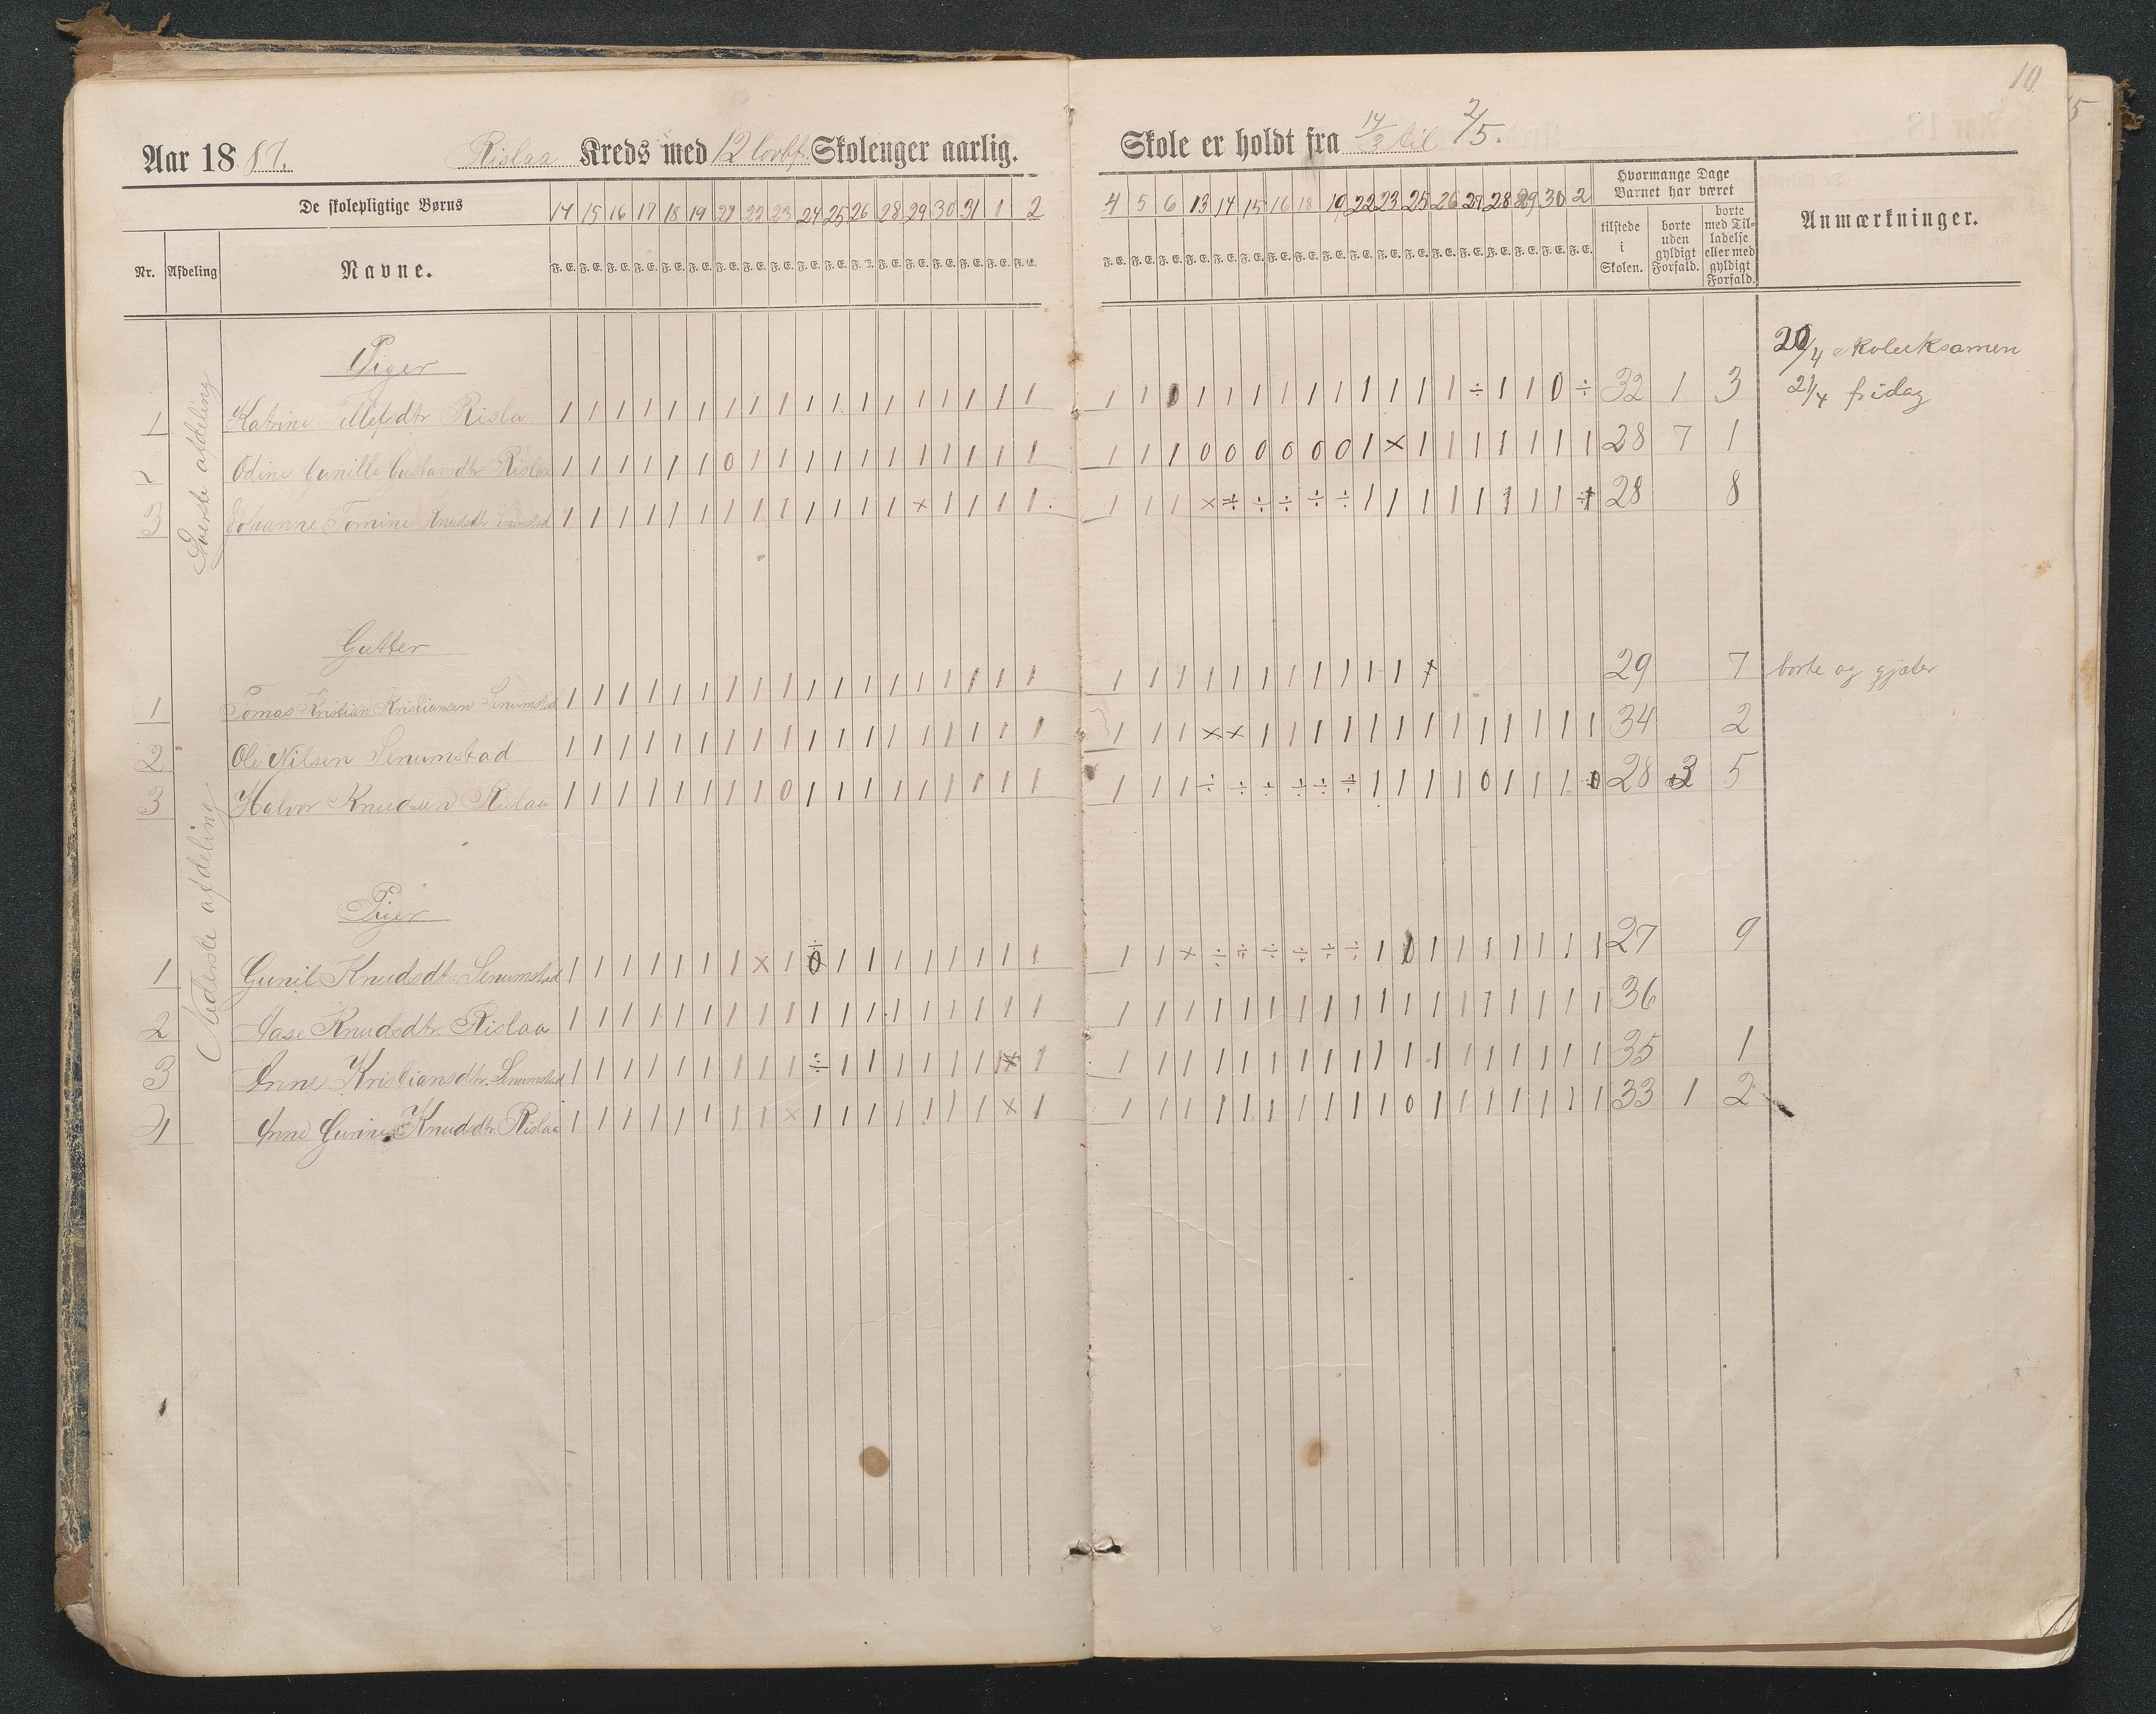 10
Aar 1887. Rislaa Kreds med 12 Skolenger aarlig. Skole er holdt fra 14/3 til 2/5.
De skolepligtige Børns
14 15 16 17 18 19 21 22 23 24 25 26 28 29 30 31 1 2
4 5 6 13 14 15 16 18 19 22 23 25 26 27 28 29 30 2
Hvormange Dage Barnet har været
Anmærkninger.
Nr. Afdeling Navne.
F. E. F. E. F. E. F. E. F. E. F. E. F. E. F. E. F. E. F. E. F. E. F. E. F. E. F. E. F. E. F. E. F. E. F. E.
F. E. F. E. F. E. F. E. F. E. F. E. F. E. F. E. F. E. F. E. F. E. F. E. F. E. F. E. F. E. F. E. F. E. F. E.
tilstede i Skolen.
borte uden gyldigt Forfald.
borte med Tilladelse eller med gyldigt Forfald.
Øverste afdeling
Piger
20/4 skoleeksamen
21/4 fridag
1 Katrine Tellefsdtr Risla 1 1 1 1 1 1 1 1 1 1 1 1 1 1 1 1 1 1 1 1 0 1 1 1 1 1 1 1 1 1 1 ÷ 1 1 0 ÷ 32 1 3
2 Odine Gunille Gustavdtr. Rislaa 1 1 1 1 1 1 0 1 1 1 1 1 1 1 1 1 1 1 1 1 1 0 0 0 0 0 0 1 × 1 1 1 1 1 1 1 28 7 1
3 Johanne Tomine Knudsdtr. Senumstad 1 1 1 1 1 1 1 1 1 1 1 1 1 × 1 1 1 1 1 1 1 × ÷ ÷ ÷ ÷ ÷ 1 1 1 1 1 1 1 1 ÷ 28 8
Gutter
1 Tomas Kristian Kristiansen Senumstad 1 1 1 1 1 1 1 1 1 1 1 1 1 1 1 1 1 1 1 1 1 1 1 1 1 1 1 1 1 × 29 7 borte og gjæter
2 Ole Nilsen Senumstad 1 1 1 1 1 1 1 1 1 1 1 1 1 1 1 1 1 1 1 1 1 × × 1 1 1 1 1 1 1 1 1 1 1 1 1 34 2
3 Halvor Knudsen Rislaa 1 1 1 1 1 1 1 1 0 1 1 1 1 1 1 1 1 1 1 1 1 ÷ ÷ ÷ ÷ ÷ ÷ 1 1 1 1 0 1 1 1 0 28 3 5
Nederste afdeling
Piger
1 Gunil Knudsdtr. Senumstad 1 1 1 1 1 1 1 × 1 ÷ 1 1 1 1 1 1 1 1 1 1 × ÷ ÷ ÷ ÷ ÷ ÷ 1 1 1 1 1 1 1 1 1 27 9
2 Aase Knudsdtr. Rislaa 1 1 1 1 1 1 1 1 1 1 1 1 1 1 1 1 1 1 1 1 1 1 1 1 1 1 1 1 1 1 1 1 1 1 1 1 36
3 Anne Kristiansdtr. Senumstad 1 1 1 1 1 1 1 1 1 ÷ 1 1 1 1 1 1 × 1 1 1 1 1 1 1 1 1 1 1 1 1 1 1 1 1 1 1 35 1
4 Anne Gurine Knuddtr. Rislaa 1 1 1 1 1 1 1 1 × 1 1 1 1 1 1 1 × 1 1 1 1 1 1 1 1 1 1 1 0 1 1 1 1 1 1 1 33 1 2